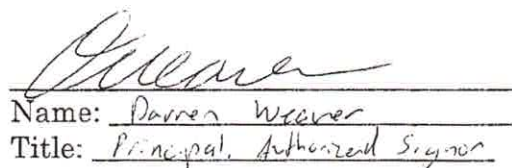 DWeaver
Name: Darren Weaver
Title: Principal, Authorized Signor